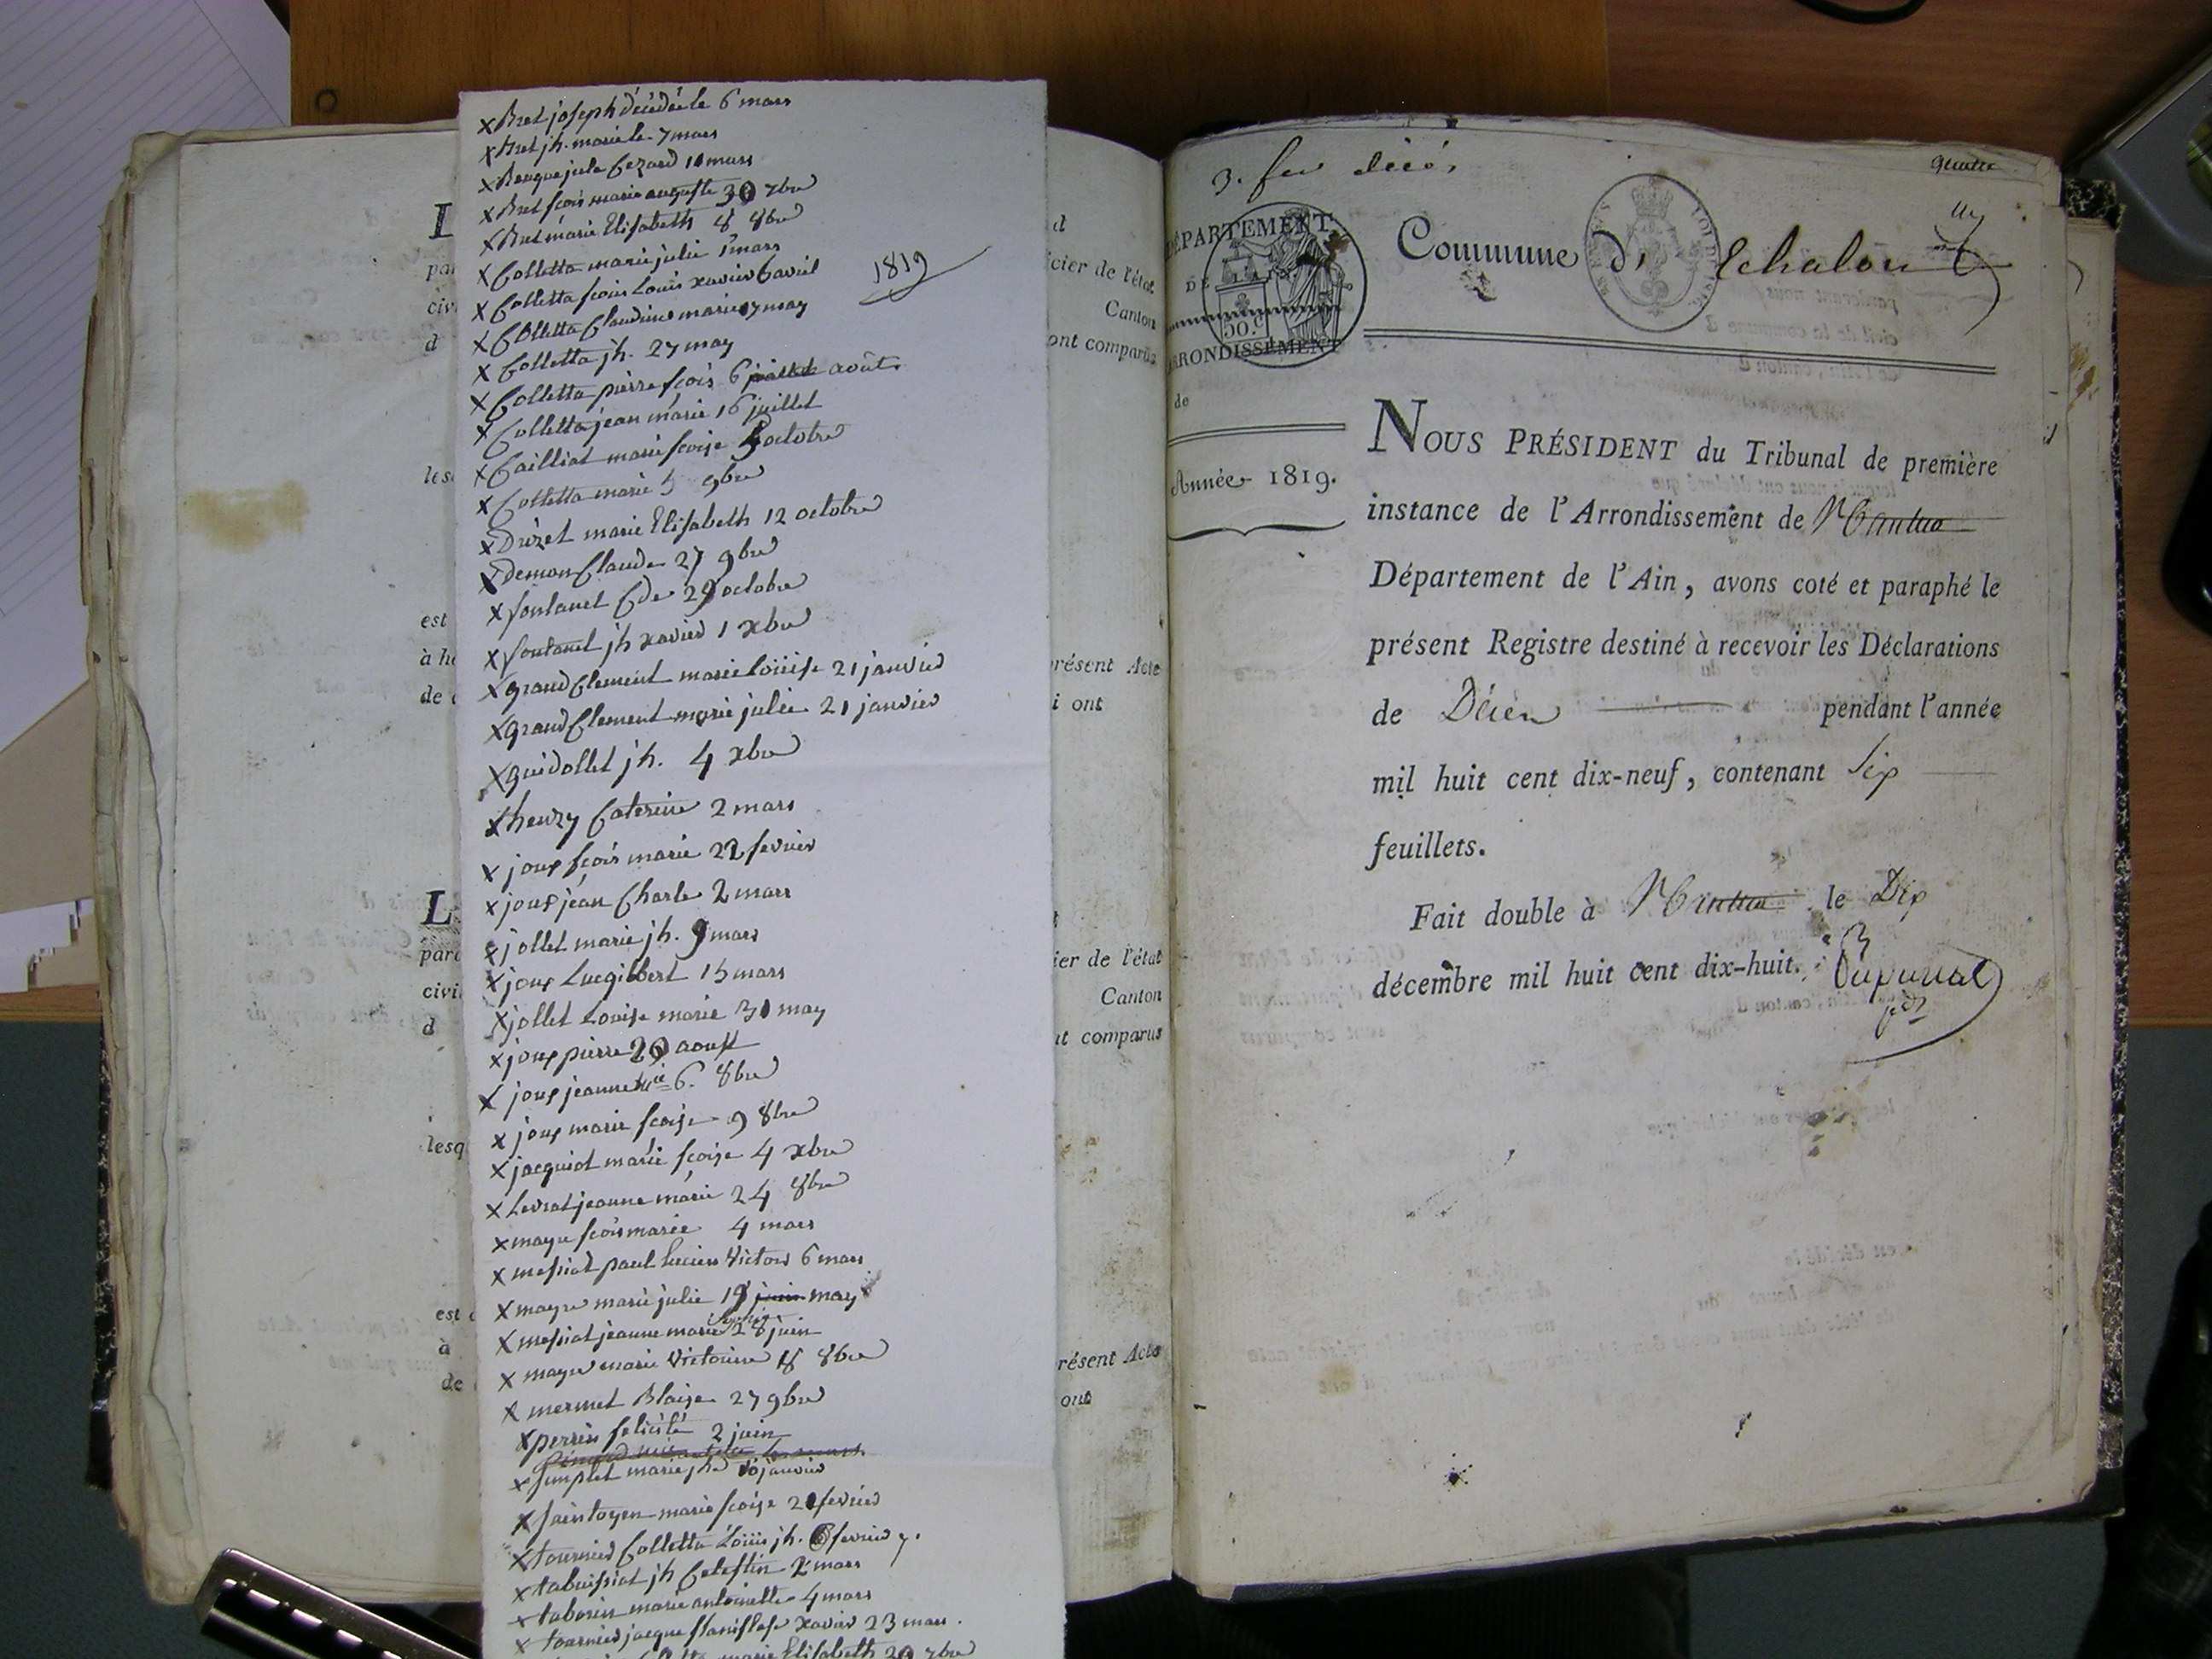 x Bret joseph décédé le 6 mars
x Bret jh. marie le 7 mars
x Bret fçois marie auguste 30 7bre
x Bret marie Elisabeth 8 8bre
x Colletta marie julie 1 mars
x Colletta fçois Louis xavier 6 avril
x Colletta Claudine marie 17 may
x Colletta jh. 27 may
x Colletta pierre fçois 6 août
x Colletta jean marie 16 juillet
x Cailliat marie fçoise 4 octobre
x Colletta marie 5 9bre
x Druzet marie Elisabeth 12 octobre
x Demon Claude 27 9bre
x fontanet Cde 29 octobre
x fontanet jh xavier 1 xbre
x grand Clement marie Louise 21 janvier
x grand Clement marie julie 21 janvier
x guidollet jh. 4 xbre
x henry Caterine 2 mars
x joux fçois marie 22 fevrier
x joux jean Charle 2 mars
x jollet marie jh. 9 mars
x joux Luc gilbert 15 mars
x jollet Louise marie 31 may
x joux pierre 29 aoust
x joux jeanne 6. 8bre
x joux marie fçoise 9 8bre
x jacquiot marie fçoise 4 xbre
x Levrat jeanne marie 24 8bre
x mayre fçois marie 4 mars
x messiat paul Lucien Victor 6 mars
x mayre marie julie 19 juin may
x messiat jeanne marie 28 juin
x mayre marie Victorine 18 8bre
x mermet Blaise 27 9bre
x perrin felicité 2 juin
x marie jhe 10 janvier
x saintoyen marie fçoise 21 fevrier
x tournier Colletta Louis jh. 6 fevrier
x tabuissiat jh Celestin 2 mars
x taborin marie antoinette 4 mars
x tournier jacque stanislase xavier 23 mars.
marie Elisabeth 20 7bre
1819
L
d
civi
d
est
de
cier de l'état
Canton
ont comparus
résent Acte
i ont
L
civi
d
lesq
est
à
de
ier de l'état
Canton
nt comparus
résent Acte
ont
3. feu décés
quatre
DÉPARTEMENT
DE
50.c
ARRONDISSEMENT
de
Année 1819.
Commune d' Echalon
NOUS PRÉSIDENT du Tribunal de première
instance de l'Arrondissement de Nantua
Département de l'Ain, avons coté et paraphé le
présent Registre destiné à recevoir les Déclarations
de Décès pendant l'année
mil huit cent dix-neuf, contenant Six
feuillets.
Fait double à Nantua le Dix
décembre mil huit cent dix-huit.